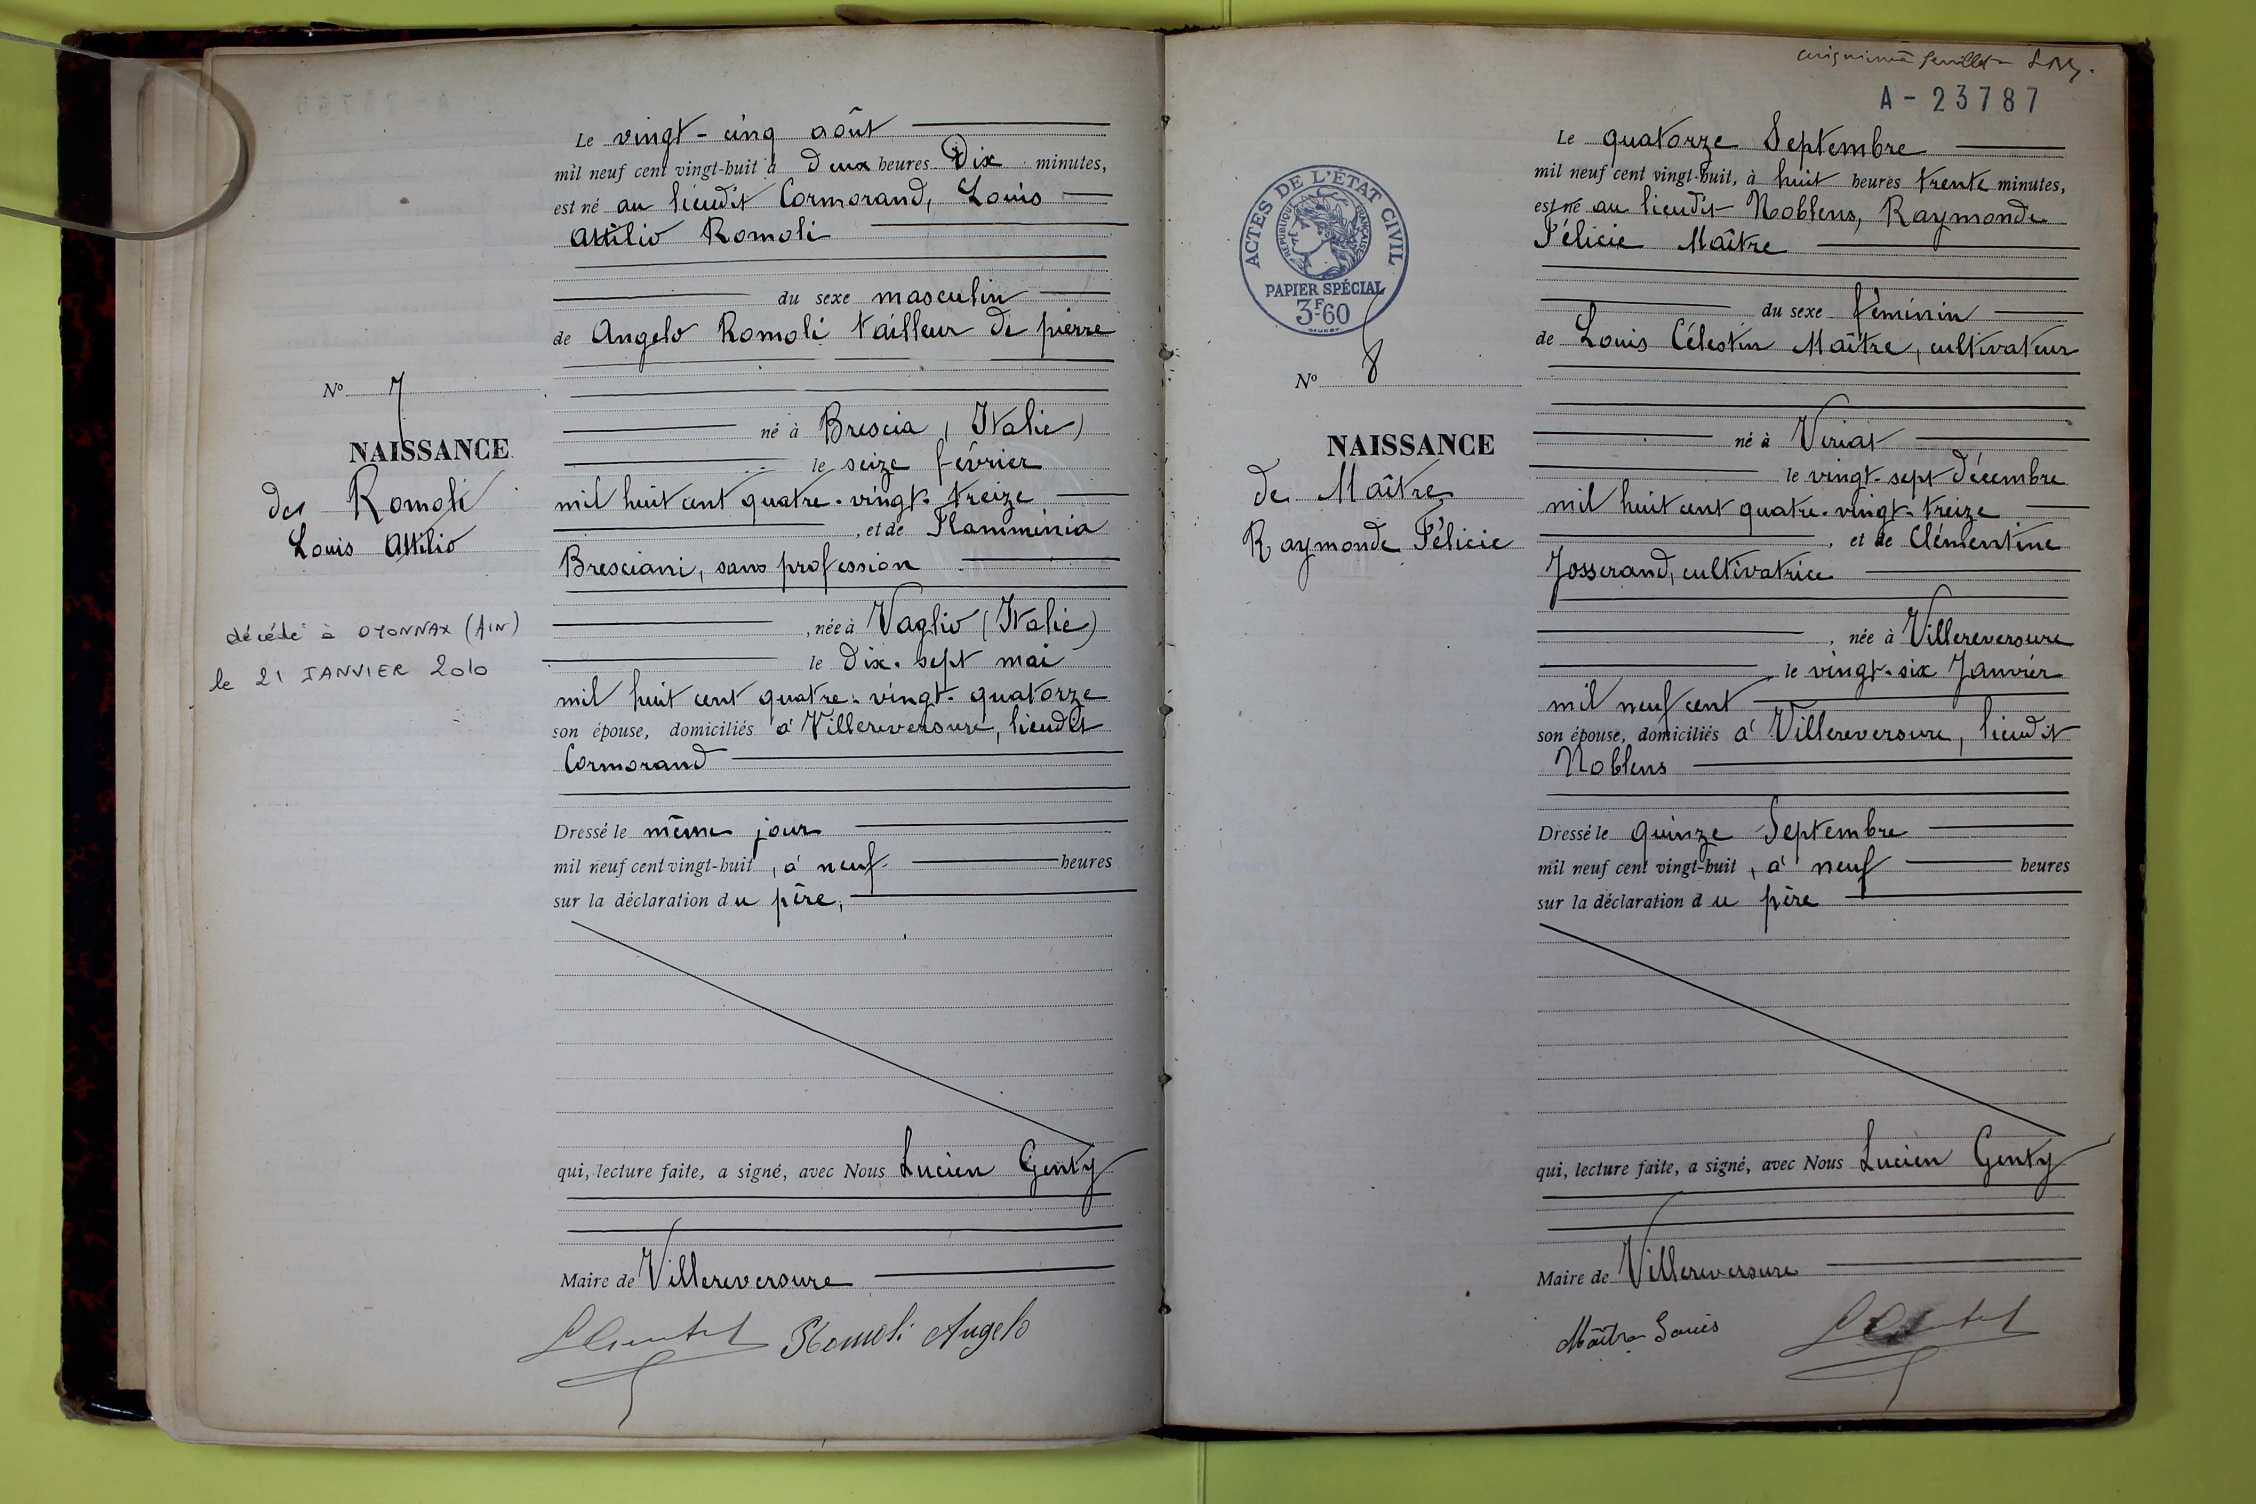 Le vingt-cinq août
mil neuf cent vingt-huit à Deux heures Dix minutes,
est né au lieudit Cormorand, Louis
Attilio Romoli
du sexe masculin
de Angelo Romoli tailleur de pierre
né à Brescia (Italie)
le seize février
mil huit cent quatre-vingt-treize
, et de Flamminia
Bresciani, sans profession
, née à Vaglio (Italie)
le dix-sept mai
mil huit cent quatre-vingt-quatorze
son épouse, domiciliés à Villereversure, lieudit
Cormorand
Dressé le même jour
mil neuf cent vingt-huit, à neuf heures
sur la déclaration du père,
qui, lecture faite, a signé, avec Nous Lucien Genty
Maire de Villereversure
Romoli Angelo
No 7
NAISSANCE
de Romoli
Louis Attilio
décédé à OYONNAX (AIN)
le 21 JANVIER 2010
feuillet
A-23787
Le quatorze Septembre
mil neuf cent vingt-huit, à huit heures trente minutes,
est né au lieudit Noblens, Raymonde
Félicie Maître
du sexe féminin
de Louis Célestin Maître, cultivateur
né à Viriat
le vingt-sept décembre
mil huit cent quatre-vingt-treize
, et de Clémentine
Josserand, cultivatrice
, née à Villereversure
le vingt-six Janvier
mil neuf cent
son épouse, domiciliés à Villereversure, lieudit
Noblens
Dressé le quinze Septembre
mil neuf cent vingt-huit, à neuf heures
sur la déclaration du père
qui, lecture faite, a signé, avec Nous Lucien Genty
Maire de Villereversure
Maître Louis
ACTES DE L'ÉTAT CIVIL
RÉPUBLIQUE FRANÇAISE
PAPIER SPÉCIAL
3F60
No 8
NAISSANCE
de Maître
Raymonde Félicie